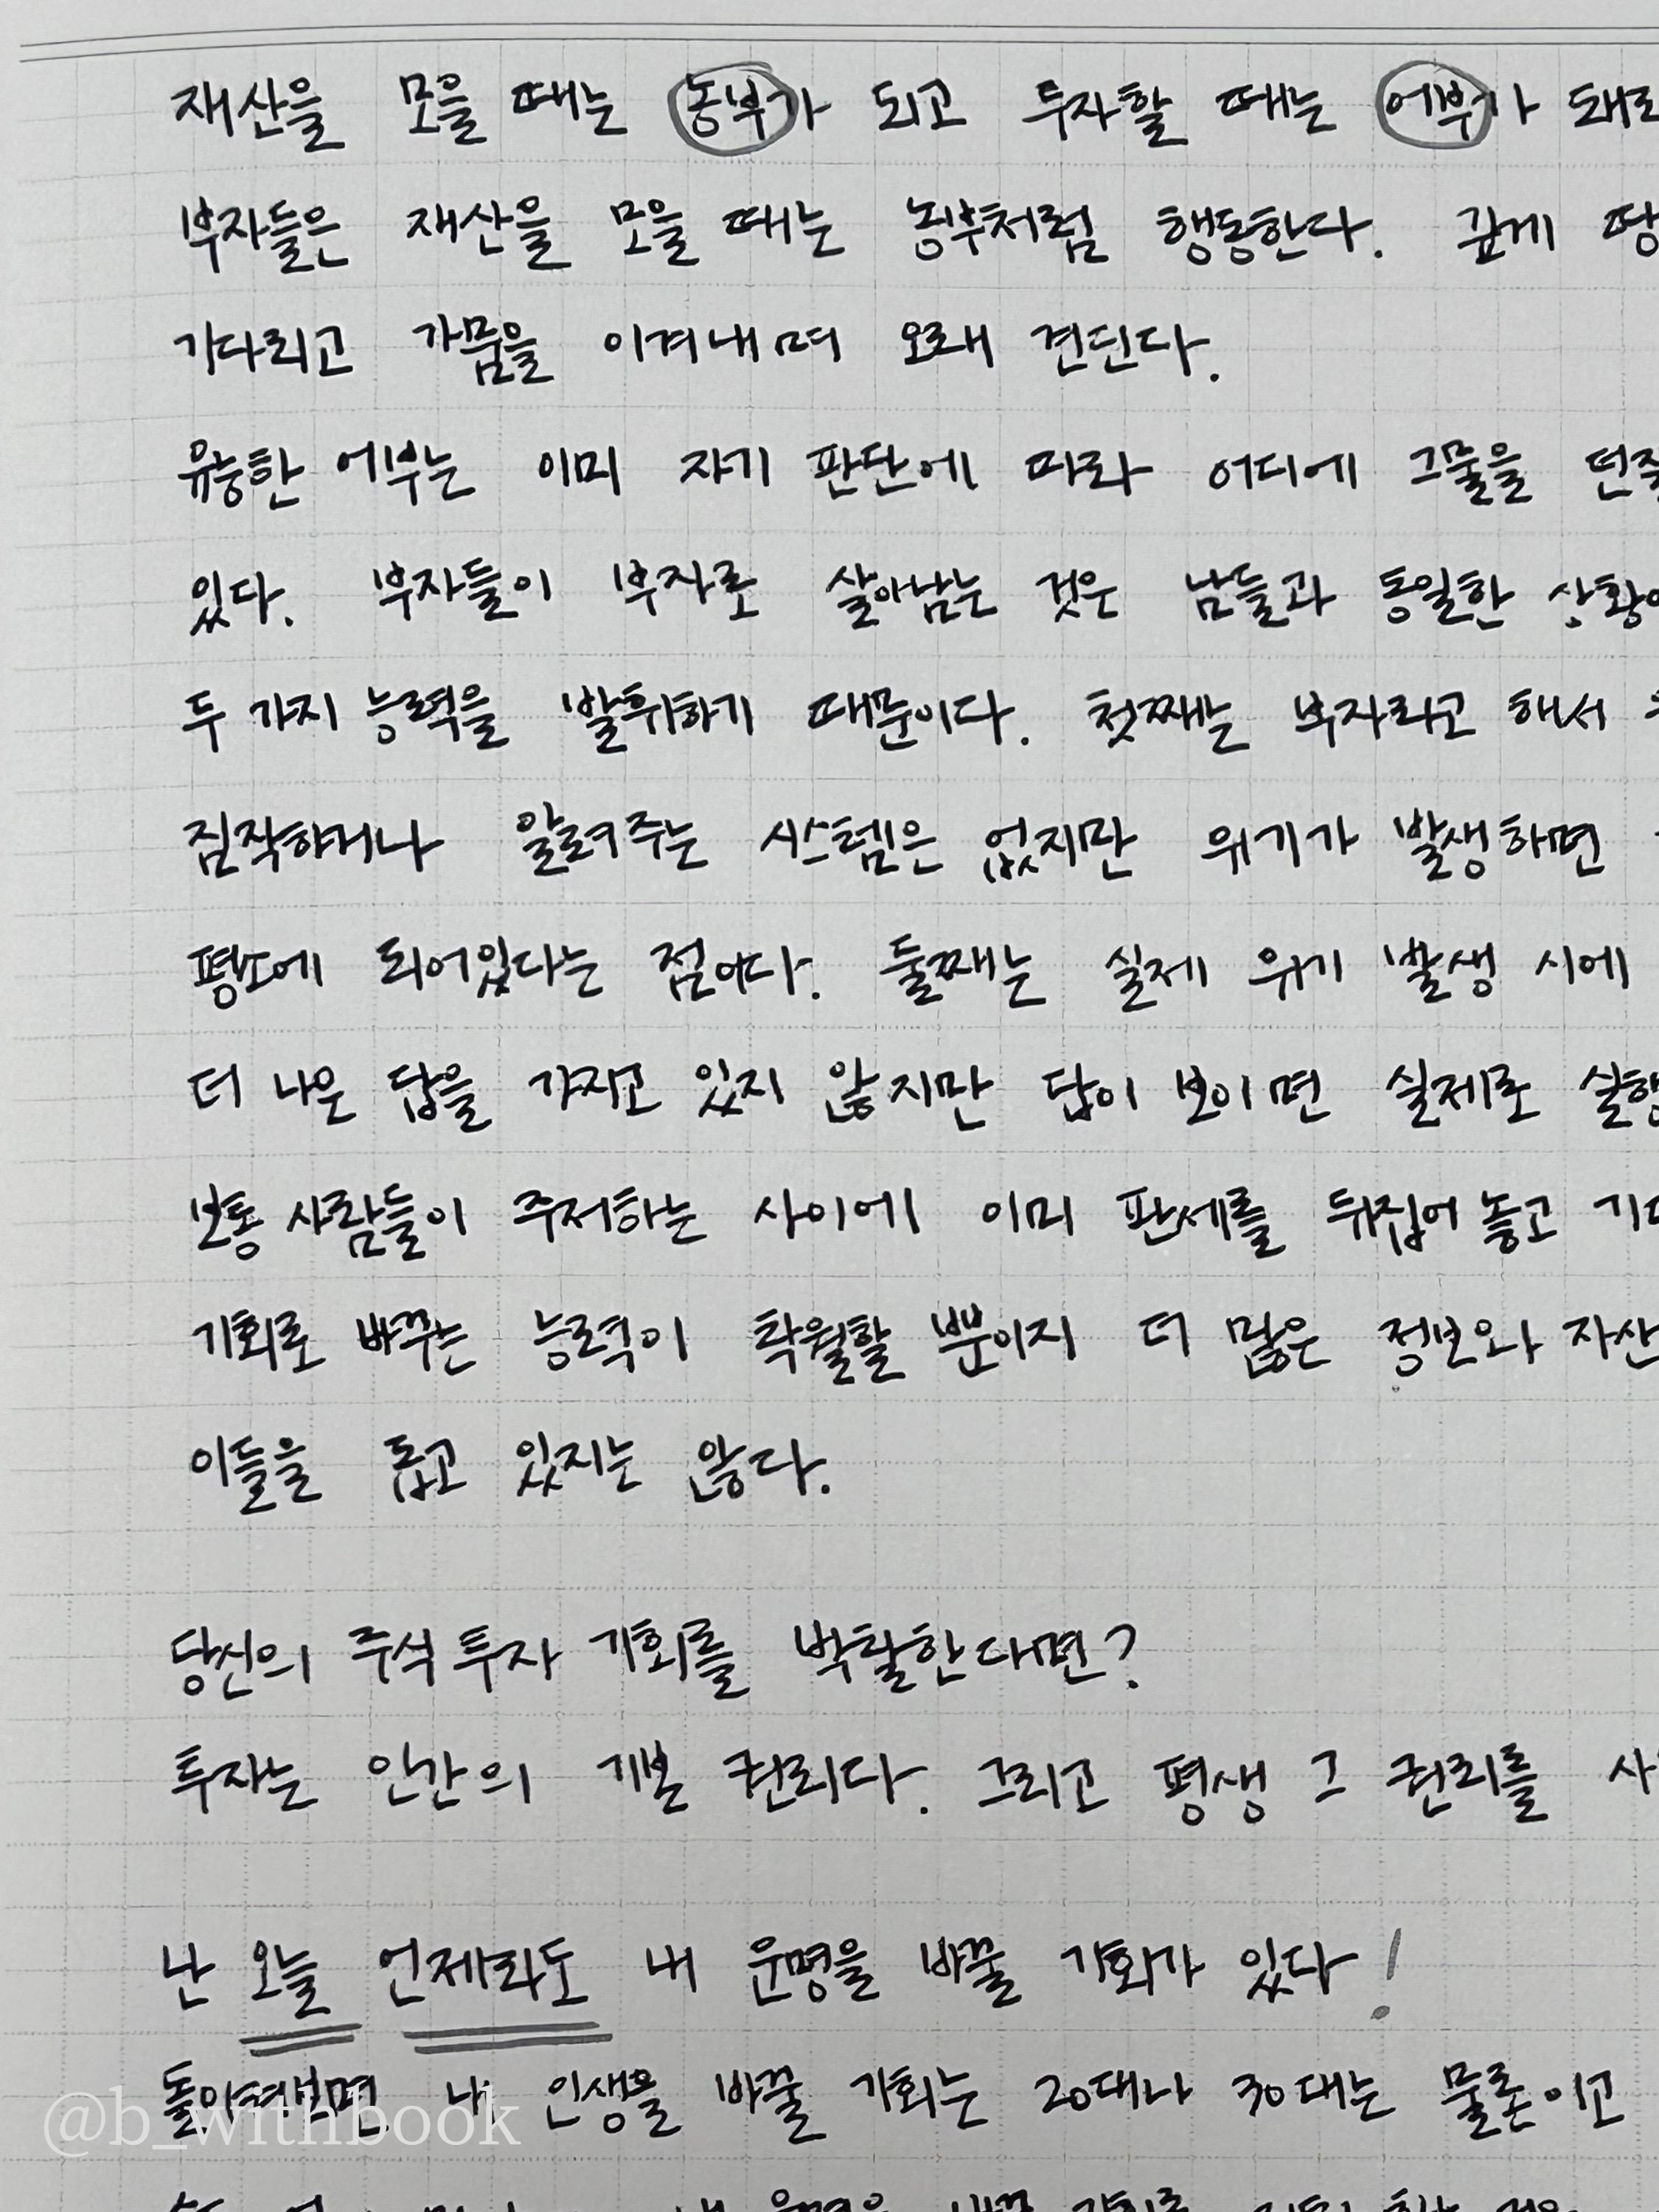 재산을 모을 때는 농부가 되고 투자할 때는 어부가 돼라
부자들은 재산을 모을 때는 농부처럼 행동한다. 깊게 땅
기다리고 가뭄을 이겨내며 오래 견딘다.
유능한 어부는 이미 자기 판단에 따라 어디에 그물을 던질
있다. 부자들이 부자로 살아남는 것은 남들과 동일한 상황에
두 가지 능력을 발휘하기 때문이다. 첫째는 부자라고 해서
짐작하거나 알려주는 시스템은 없지만 위기가 발생하면
평소에 되어있다는 점이다. 둘째는 실제 위기 발생 시에
더 나은 답을 가지고 있지 않지만 답이 보이면 실제로 실행
보통 사람들이 주저하는 사이에 이미 판세를 뒤집어 놓고
기회로 바꾸는 능력이 탁월할 뿐이지 더 많은 정보와 자산
이들을 돕고 있지는 않다.
당신의 주식 투자 기회를 박탈한다면?
투자는 인간의 기본 권리다. 그리고 평생 그 권리를
난 오늘 언제라도 내 운명을 바꿀 기회가 있다!
돌이켜보면 내 인생을 바꿀 기회는 20대나 30대는 물론이고
@b_withbook